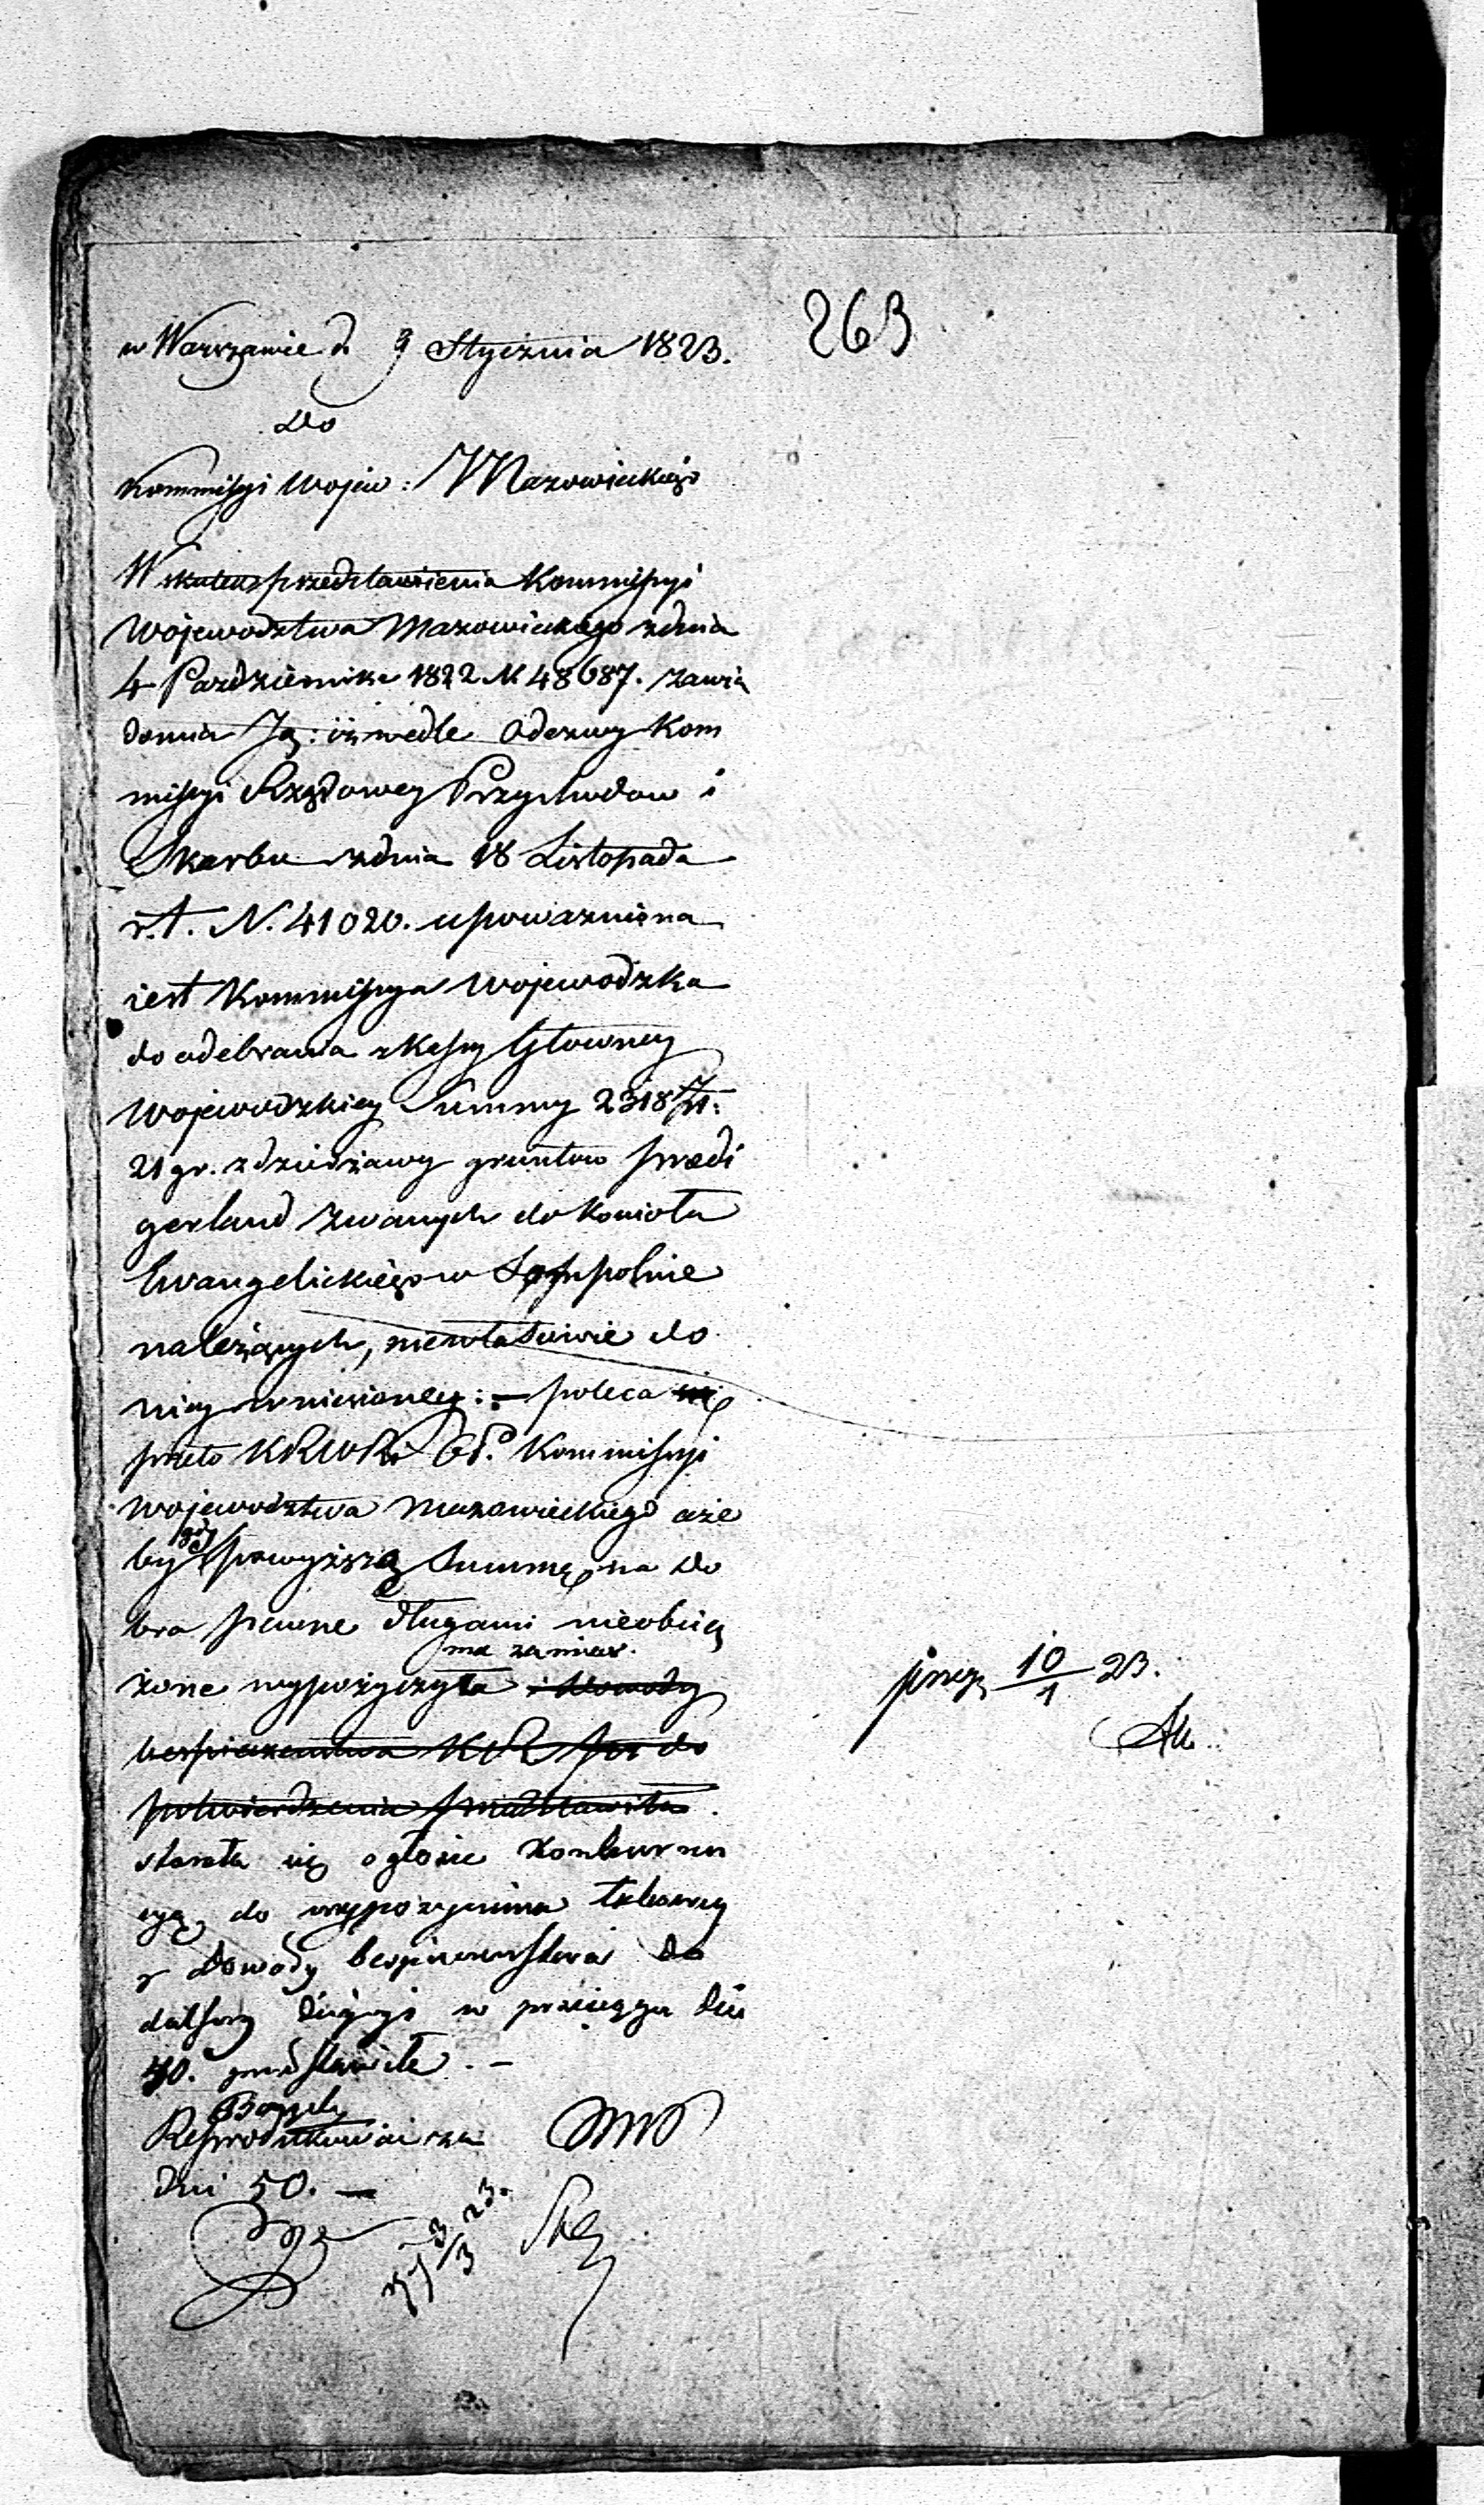 263
w Warszawie d. 9 Stycznia 1823.
do
Kommissyi Wojew: Mazowieckiego
W skutku przedstawienia Kommissyi
Województwa Mazowieckiego zdnia
4 Pazdziernika 1822 N 48687. zawia
domia Ją: iż wedle Odezwy Kom
missyi Rządowey Przychodow i
Skarbu zdnia 18 Listopada
r.t. N. 41020. upowazniona
iest Kommissya Wojewodzka
do odebrania z Kassy Głowney
Wojewodzkiey Summy 2318 Zł:
21 gr. z dzierżawy gruntow predi
gerland zwanych do Kościoła
Ewangelickiego w Sompolnie
należących, niewłaściwie do
niey wniesioney: – poleca
przeto KRWRiOP. Kommissyi
Województwa Mazowieckiego aże
by gdy powyższą Summę na do
bra pewne długami nieobcią
żone wypożyczyła ma zamiar. i dowody
bespieczenstwa KR do
potwierdzenia przedstawiła.
starała się ogłosić konkurren
cyą do wypozyczenia takowey
y dowody bespieczenstwa do
dalszey decyzyi w przeciągu dni
40. przedstawiła. –
Reprodukować za
dni 50. –
3/3 23.
przez 10/1 23.